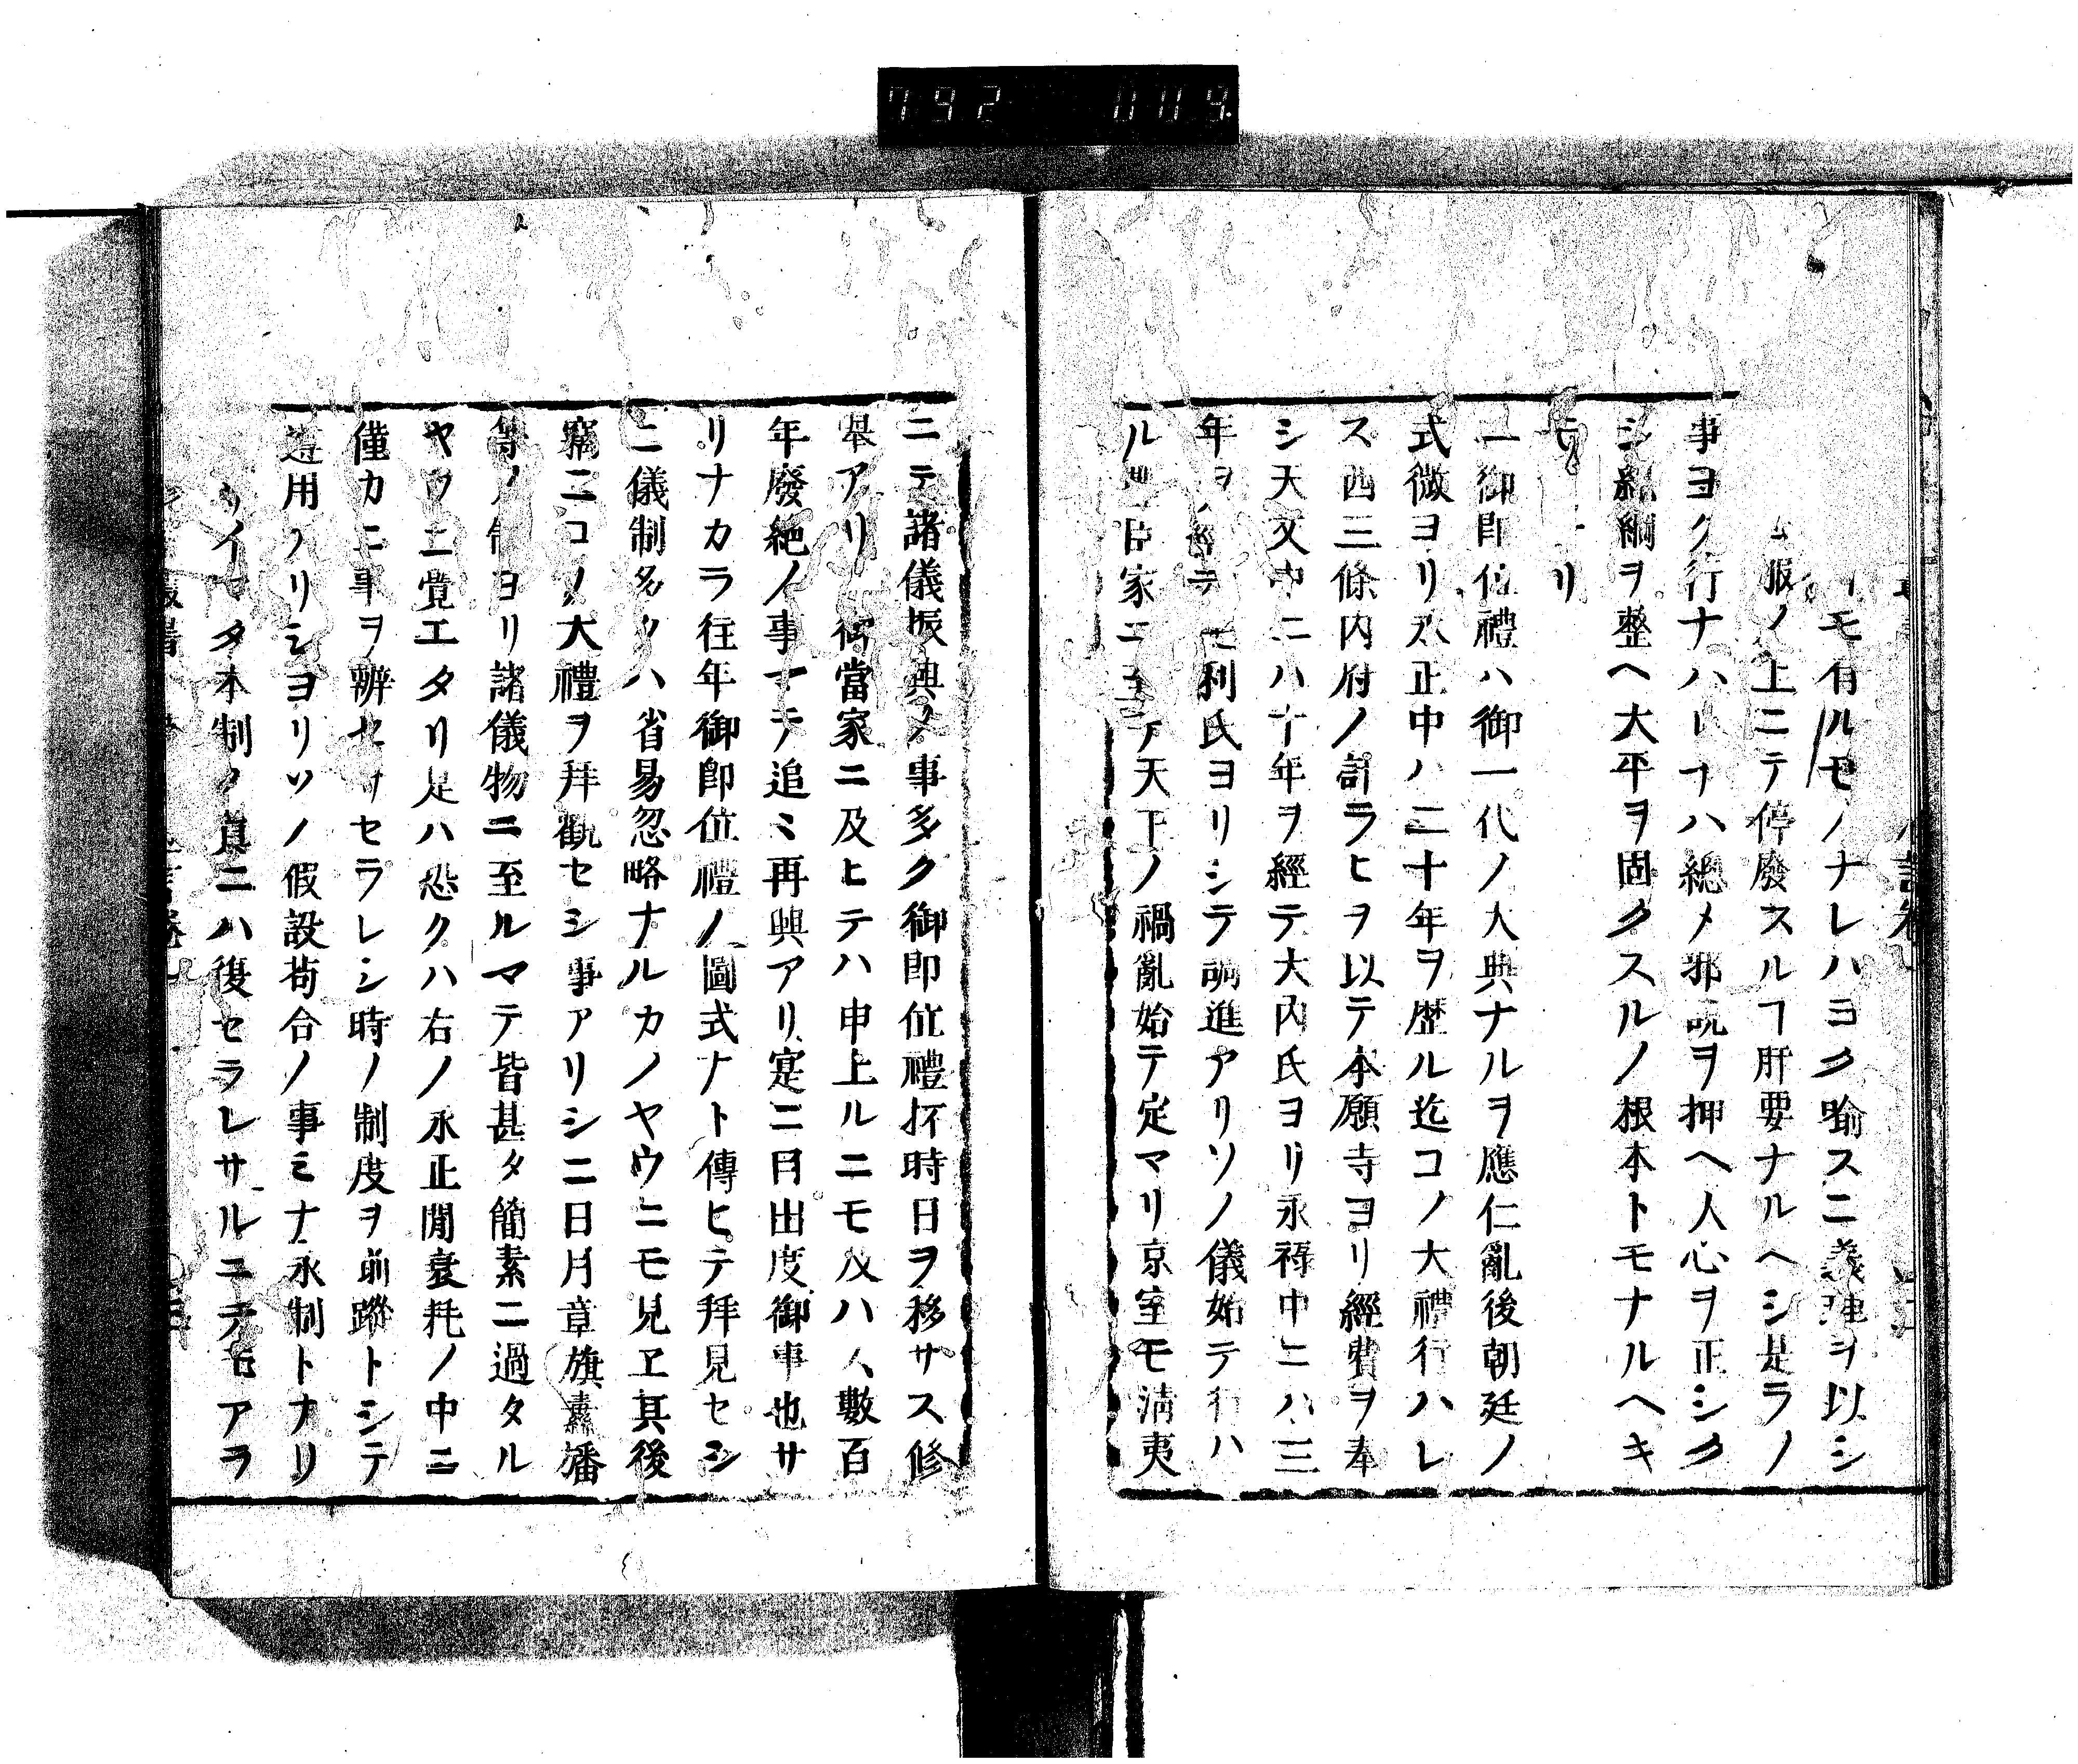 792 009
モ有ルモノナレハヨク喩スニ義理ヲ以シ
服ノ上ニテ停廢スルヿ肝要ナルヘシ是ラノ
事ヨク行ナハーヿハ總メ邪説ヲ押ヘ人心ヲ正シク
シ紀綱ヲ整ヘ大平ヲ固クスルノ根本トモナルヘキ
モ リ
一御即位禮ハ御一代ノ大典ナルヲ應仁亂後朝廷ノ
式微ヨリ永正中ハ二十年ヲ歴ル迄コノ大禮行ハレ
ス西三條内府ノ計ラヒヲ以テ本願寺ヨリ經費ヲ奉
シ天文中ニハ十年ヲ經テ大内氏ヨリ永禄中ニハ三
年ヲ經テ 利氏ヨリシテ調進アリソノ儀始テ行ハ
ル 臣家ニ至テ天下ノ禍亂始テ定マリ京室モ清夷
ニテ諸儀振興ノ事多ク御即位禮抔時日ヲ移サス修
舉アリ 當家ニ及ヒテハ申上ルニモ及ハス數百
年廢絶ノ事マテ追ミ再興アリ寔ニ目出度御事也サ
リナカラ往年御即位禮ノ圖式ナト傳ヒテ拜見セシ
ニ儀制多クハ省易忽略ナルカノヤウニモ見ヱ其後
竊ニコノ大禮ヲ拜觀セシ事アリシニ日月章旗纛旛
等ノ制ヨリ諸儀物ニ至ルマテ皆甚タ簡素ニ過タル
ヤウニ覺エタリ是ハ恐クハ右ノ永正閒衰耗ノ中ニ
僅カニ事ヲ辨セサセラレシ時ノ制度ヲ前蹤トシテ
遵用アリシヨリソノ假設苟合ノ事ミナ永制トナリ
イマタ本制ノ眞ニハ復セラレサルニテモアラ